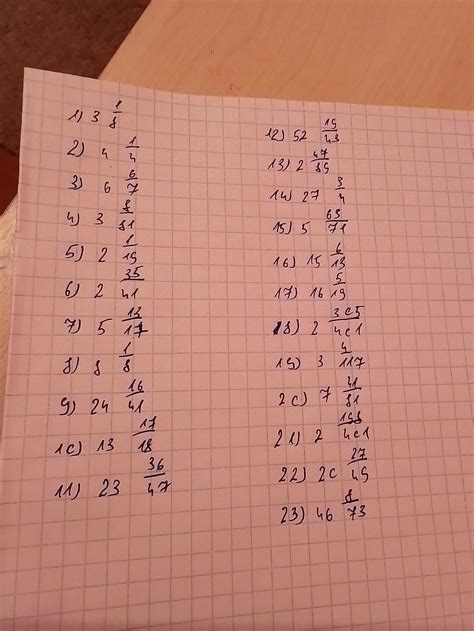 1) 3 1/8
2) 4 1/4
3) 6 6/7
4) 3 8/81
5) 2 1/19
6) 2 35/41
7) 5 12/17
8) 8 1/8
9) 24 16/41
10) 13 17/18
11) 23 36/47
12) 52 19/43
13) 2 47
14) 27 3/4
15) 5 69/71
16) 15 6/19
17) 16 5/19
18) 2 305/401
19) 3 4/117
20) 7 41/81
21) 2 198/401
22) 20 27/49
23) 46 8/73